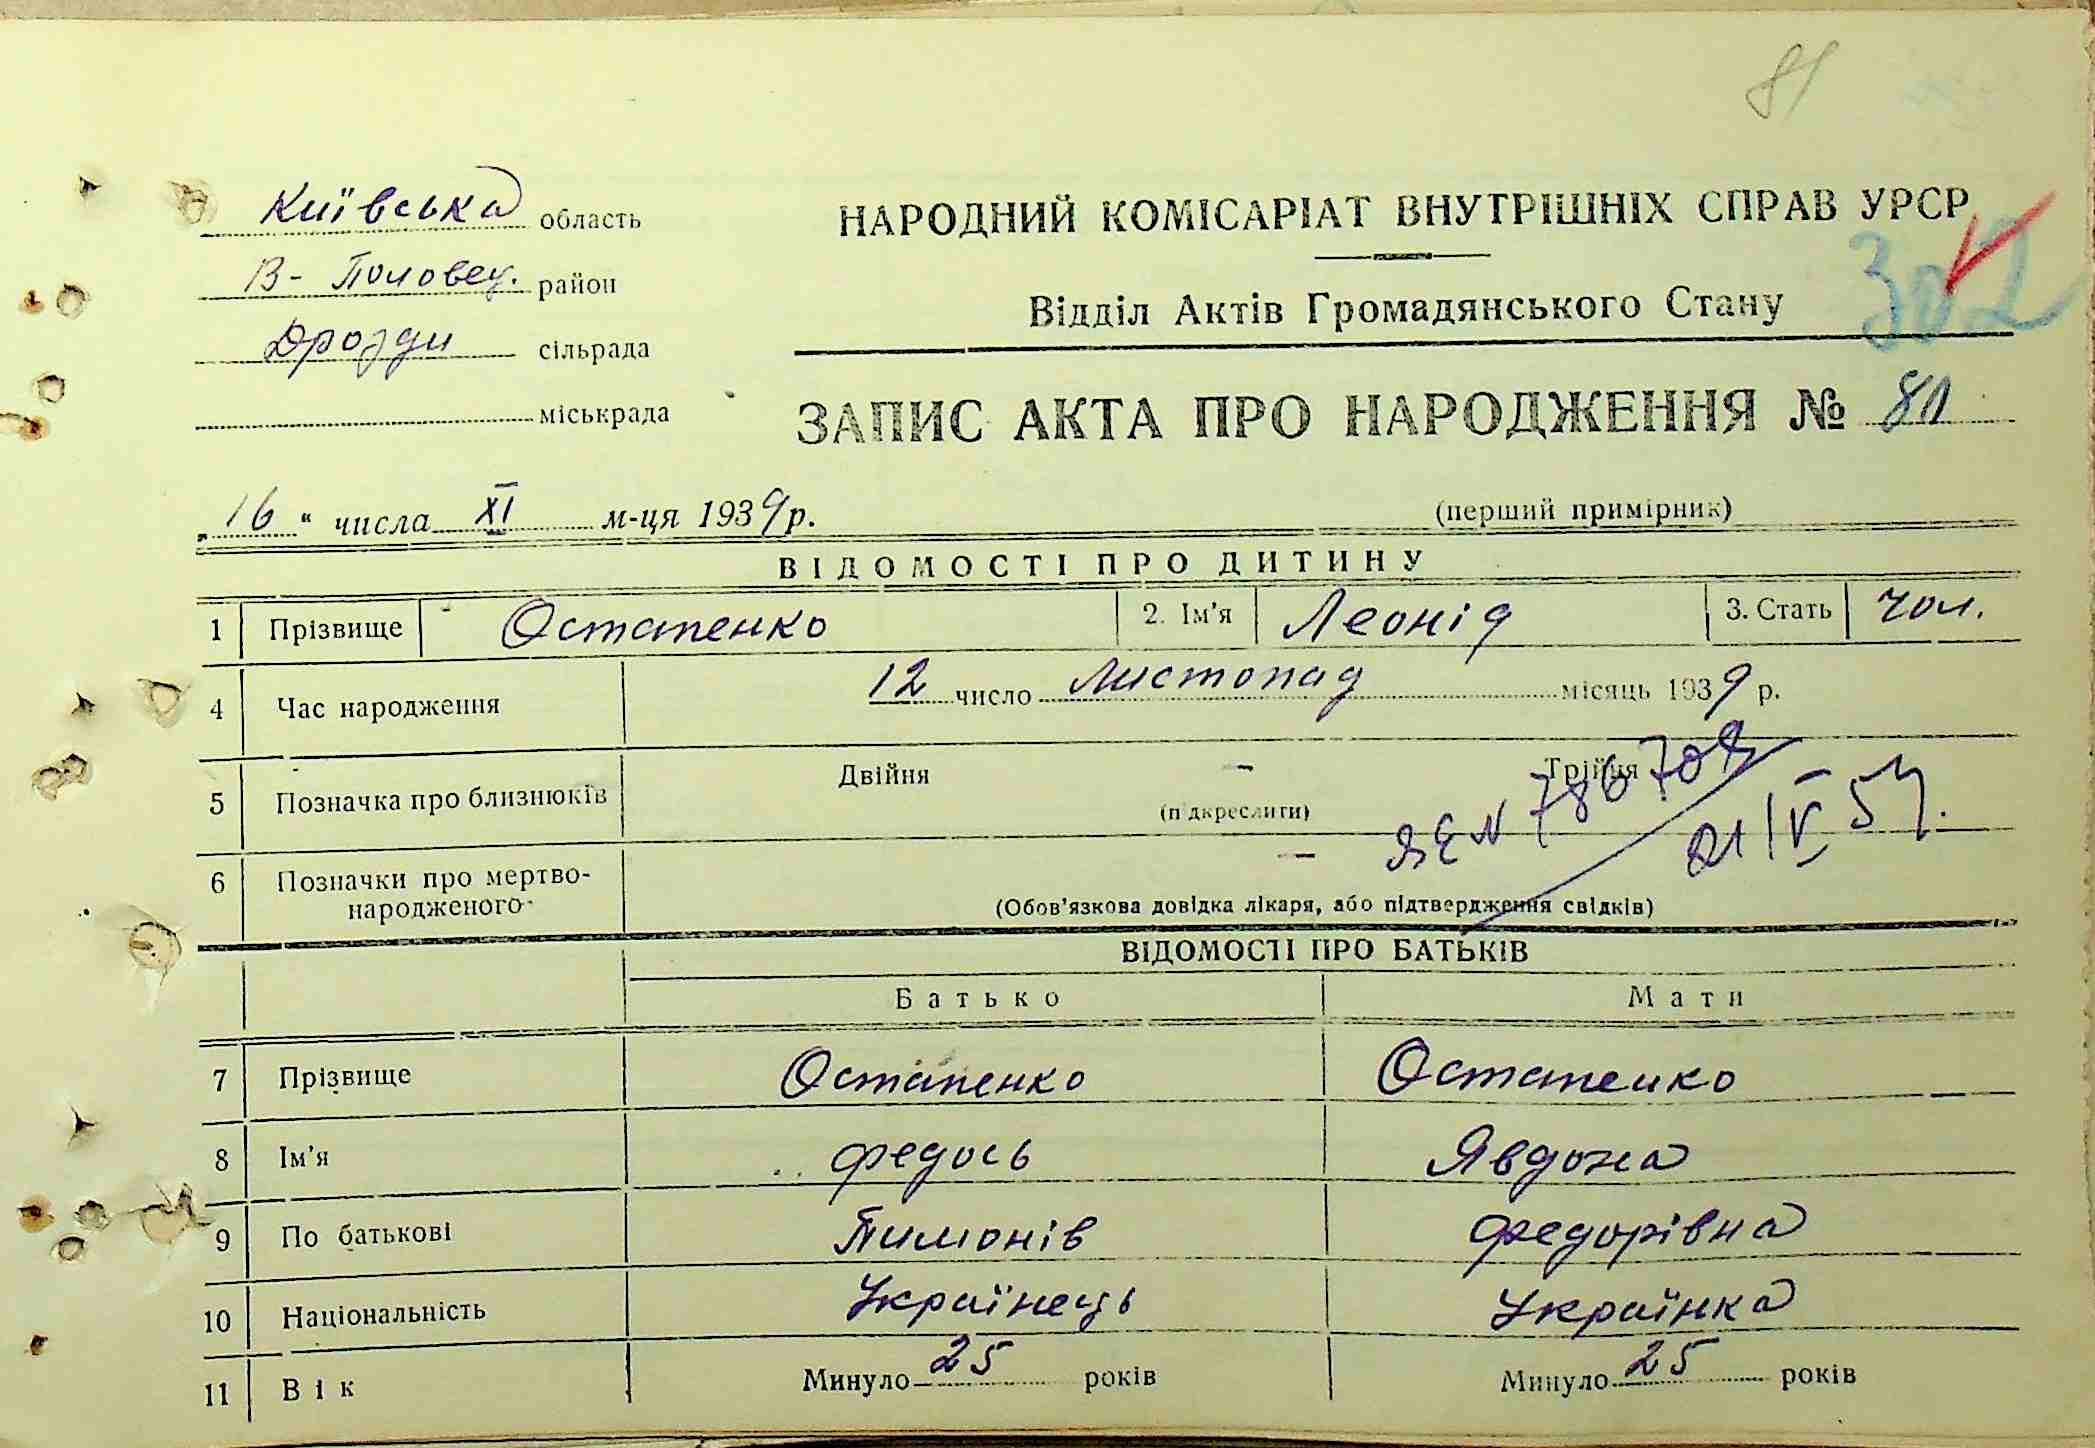 81
Київська область
В- Половец. район
Дрозди сільрада
міськрада
НАРОДНИЙ КОМІСАРІАТ ВНУТРІШНІХ СПРАВ УРСР
302
Відділ Актів Громадянського Стану
ЗАПИС АКТА ПРО НАРОДЖЕННЯ № 81
„16“ числа XI м-ця 1939 р.
(перший примірник)
ВІДОМОСТІ ПРО ДИТИНУ
1 Прізвище Остапенко 2. Ім'я Леонід 3. Стать чол.
4 Час народження 12 число Листопад місяць 1939 р.
5 Позначка про близнюків Двійня – Трійня
(підкреслити)
ЯЕ № 786708
21/IV 54.
6 Позначки про мертво-
народженого –
(Обов'язкова довідка лікаря, або підтвердження свідків)
ВІДОМОСТІ ПРО БАТЬКІВ
Батько Мати
7 Прізвище Остапенко Остапенко
8 Ім'я Федось Явдоха
9 По батькові Пимонів Федорівна
10 Національність Українець Українка
11 Вік Минуло 25 років Минуло 25 років